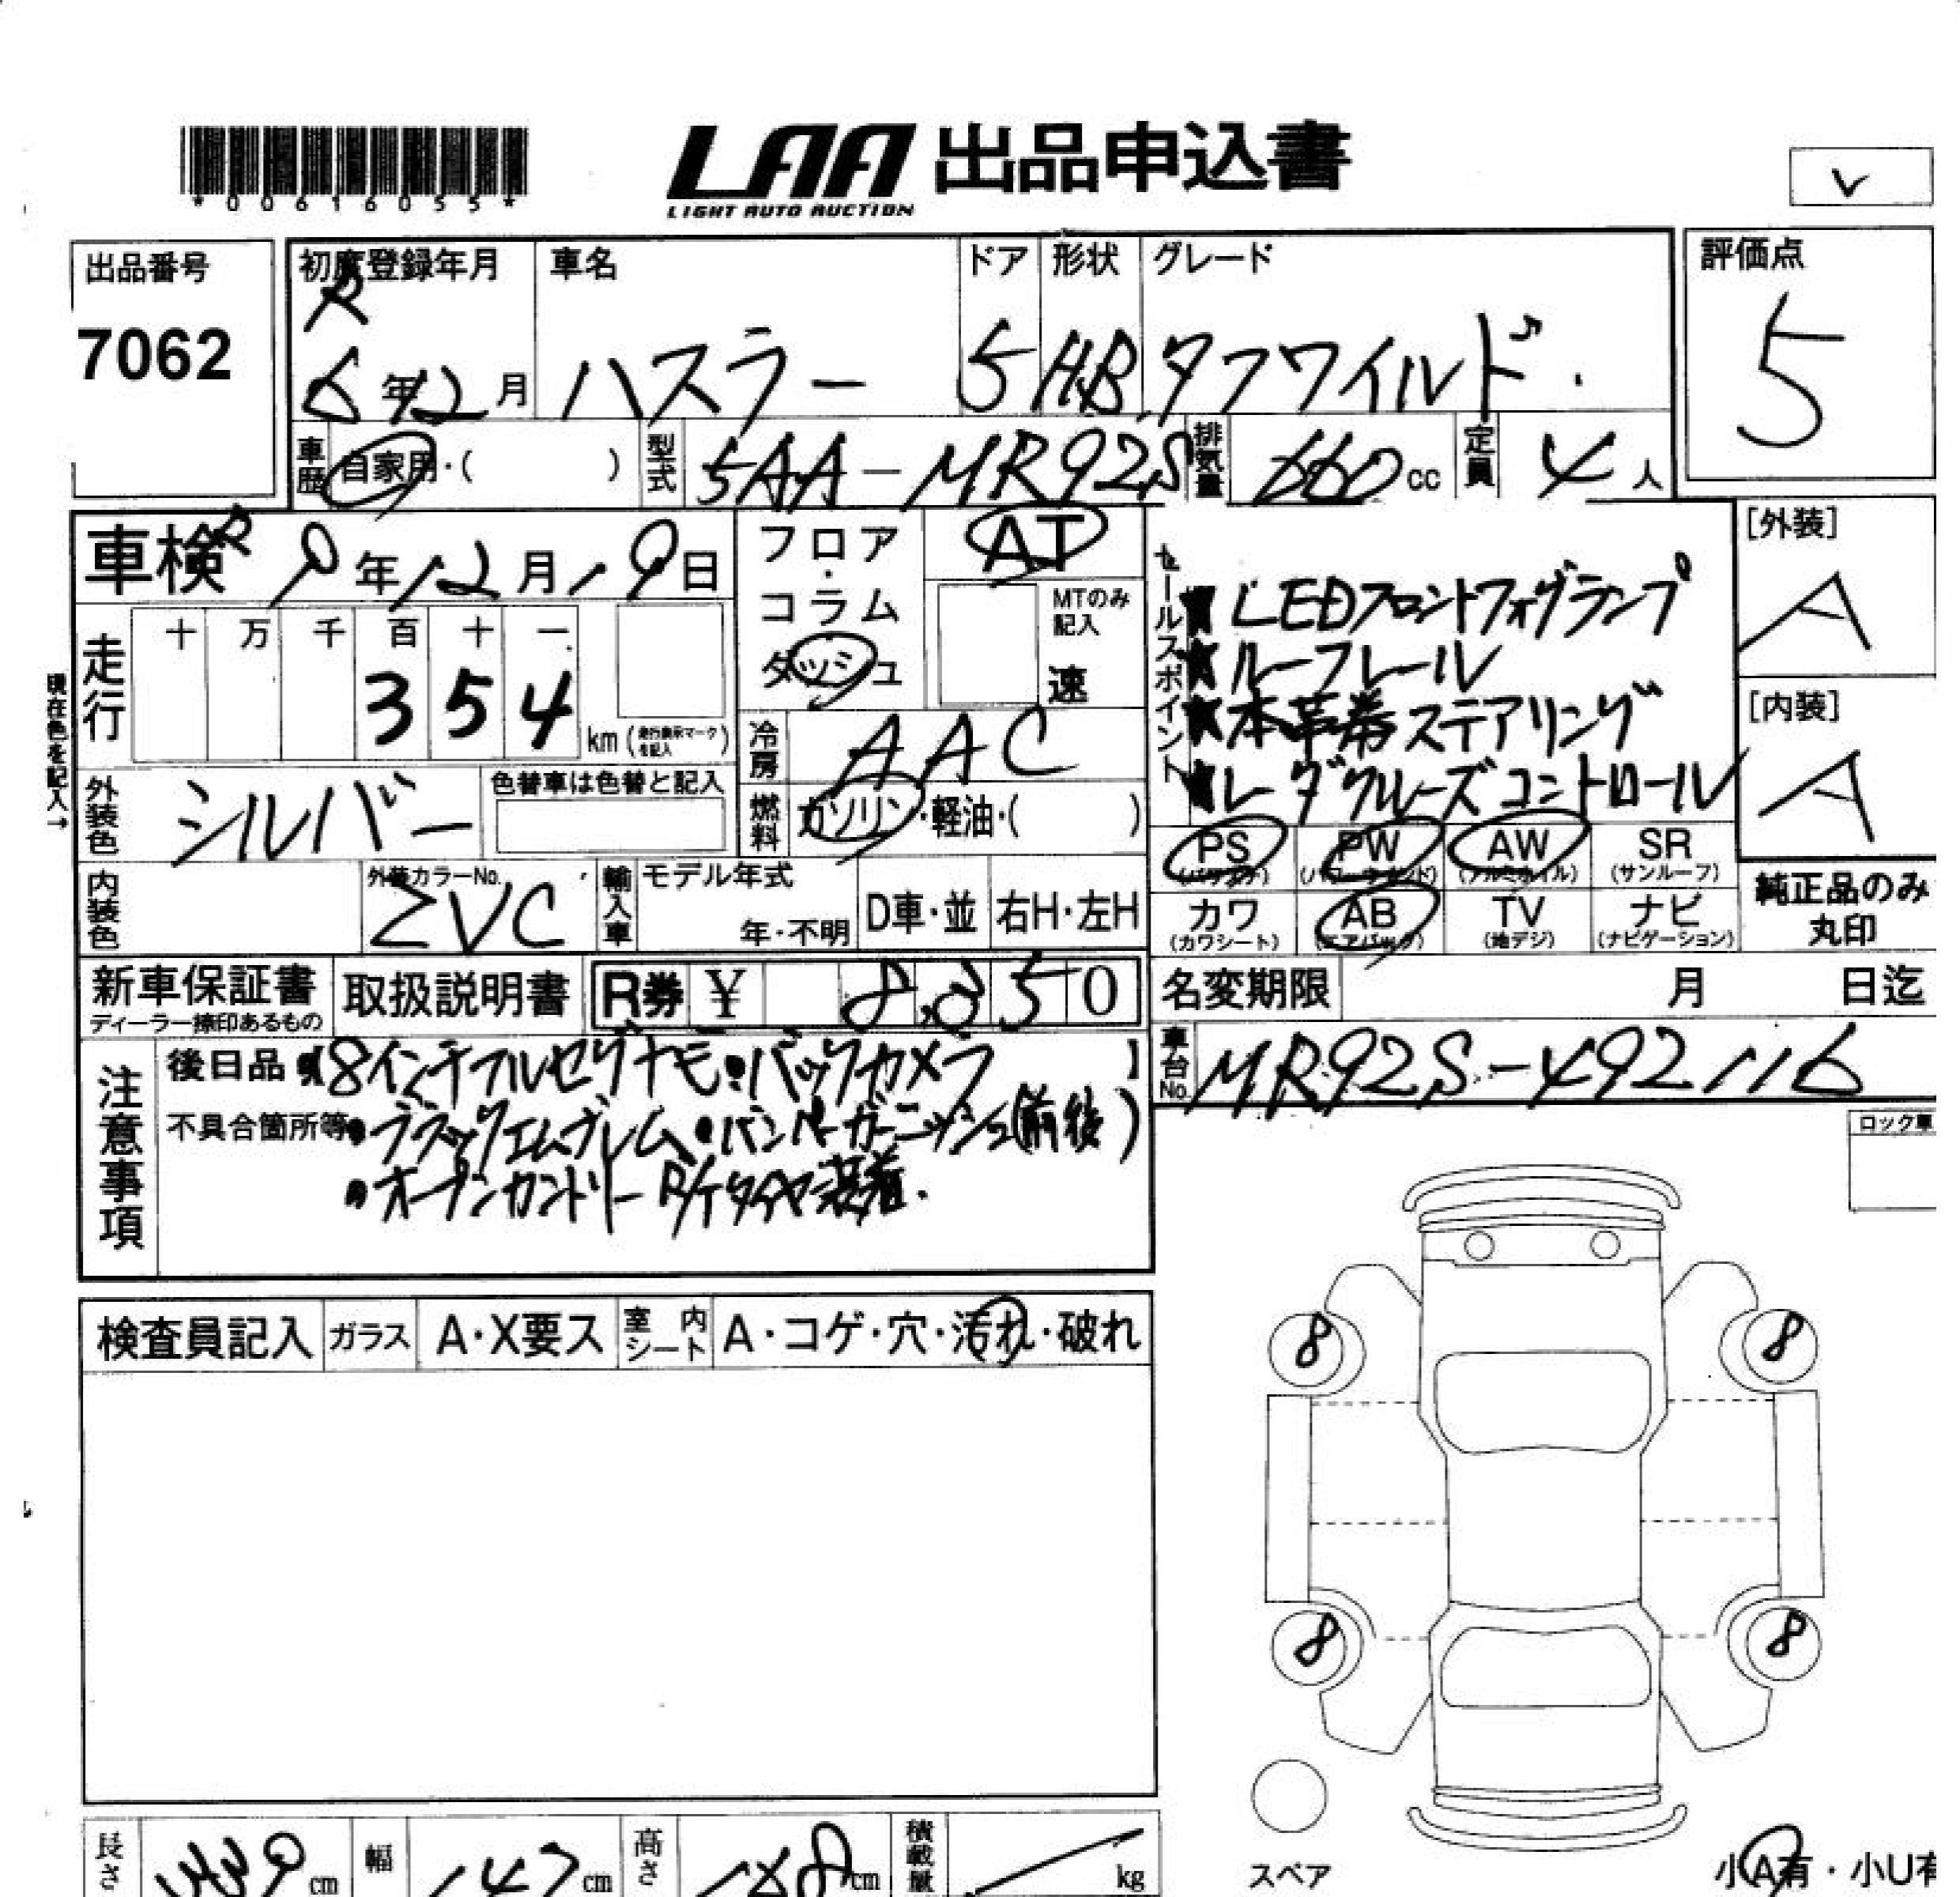 LAA 出品申込書
LIGHT AUTO AUCTION
*00616055*
V
出品番号
7062
初度登録年月
R
6年12月
車名
ハスラー
ドア
5
形状
HB
グレード
タフワイルド.
評価点
5
車歴
自家用・( )
型式
5AA-MR92S
排気量
660cc
定員
4人
車検 R9年12月19日
フロア・コラム
ダッシュ
AT
MTのみ記入
速
セールスポイント
★LEDフロントフォグランプ
★ルーフレール
★本革巻ステアリング
★レーダクルーズコントロール
[外装]
A
[内装]
A
現在色を記入→
走行
十 万 千 百 十 一
3 5 4
km (走行表示マークを記入)
冷房
AAC
外装色
シルバー
色替車は色替と記入
燃料
ガソリン・軽油・( )
PS
(パワステ)
PW
(パワーウインド)
AW
(アルミホイル)
SR
(サンルーフ)
内装色
外装カラーNo.
ZVC
輸入車
モデル年式
年・不明
D車・並
右H・左H
カワ
(カワシート)
AB
(エアバッグ)
TV
(地デジ)
ナビ
(ナビゲーション)
純正品のみ
丸印
新車保証書
ディーラー捺印あるもの
取扱説明書
R券 ¥ 8,850
名変期限
月 日迄
車台No.
MR92S-492116
注意事項
後日品【8インチフルセグナビ・バックカメラ 】
不具合箇所等・ブラックエムブレム・バンパーガーニッシュ(前後)
・オープンカントリーR/Tタイヤ装着.
ロック車
検査員記入
ガラス
A・X要ス
室内シート
A・コゲ・穴・汚れ・破れ
8
8
8
8
スペア
長さ
339cm
幅
147cm
高さ
168cm
積載量
kg
小A有・小U有